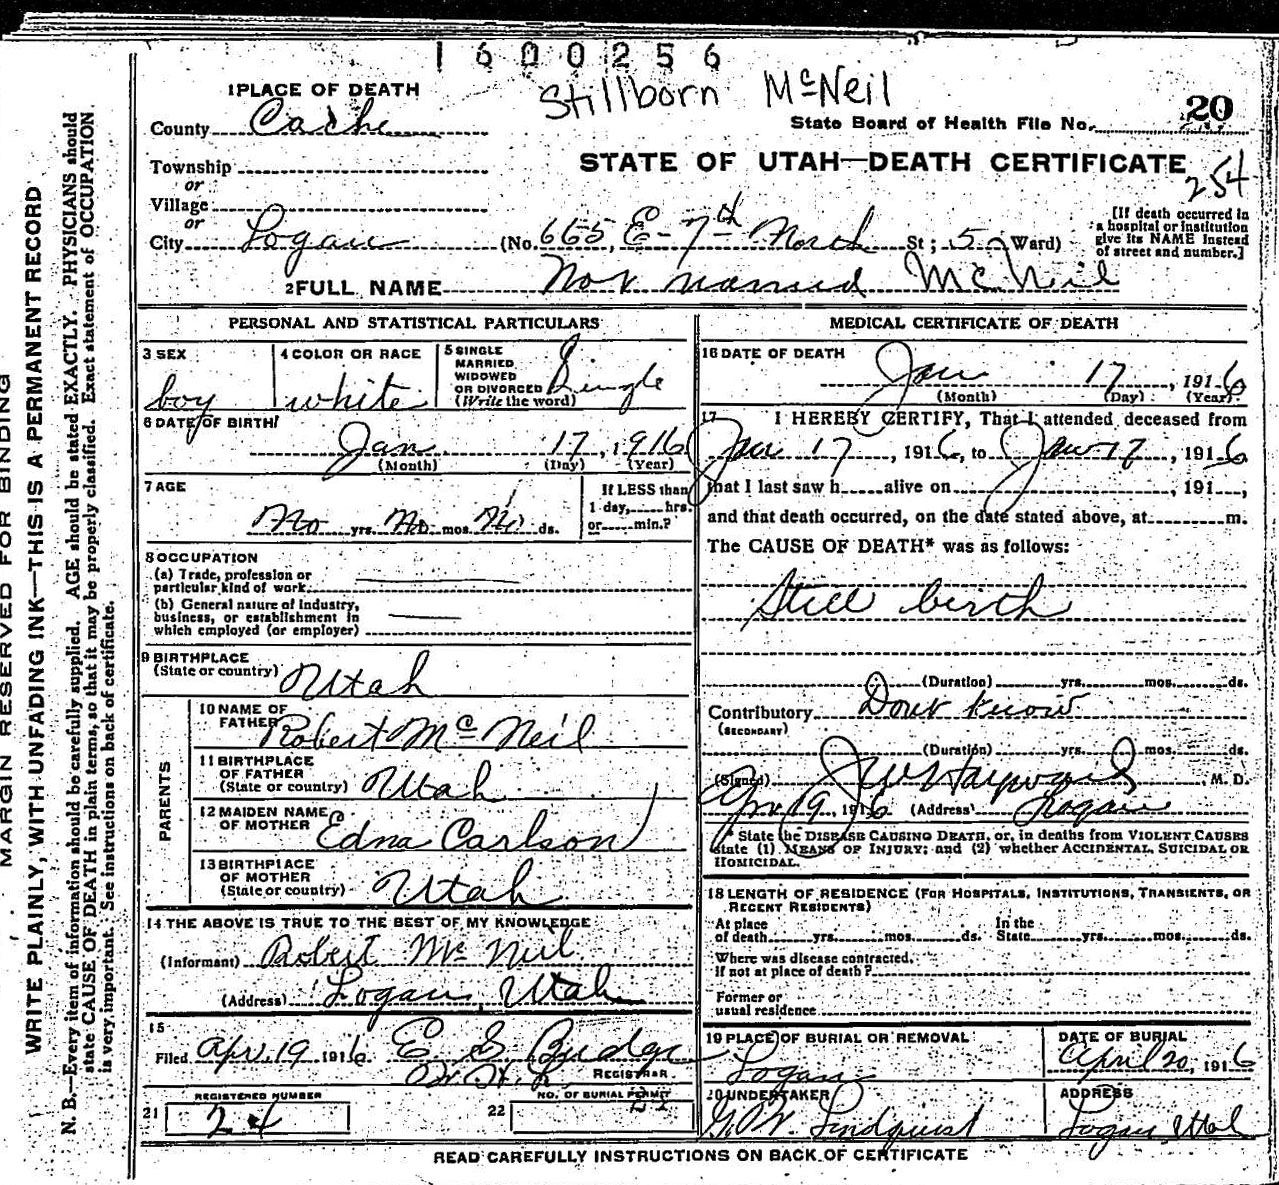 1600256
Stillborn McNeil
1 PLACE OF DEATH
County Cache
State Board of Health File No. 20
Township
or
STATE OF UTAH—DEATH CERTIFICATE
254
Village
or
City Logan (No. 665 E-7th North St; 5 Ward)
[If death occurred in
a hospital or institution
give its NAME instead
of street and number.]
2 FULL NAME Not named McNeil
PERSONAL AND STATISTICAL PARTICULARS
3 SEX
boy
4 COLOR OR RACE
white
5 SINGLE
MARRIED
WIDOWED
OR DIVORCED
(Write the word)
Single
6 DATE OF BIRTH
Jan 17, 1916
(Month) (Day) (Year)
7 AGE
No yrs. No mos. No ds.
If LESS than
1 day, hrs.
or min.?
8 OCCUPATION
(a) Trade, profession or
particular kind of work
(b) General nature of industry,
business, or establishment in
which employed (or employer)
9 BIRTHPLACE
(State or country) Utah
PARENTS
10 NAME OF
FATHER Robert McNeil
11 BIRTHPLACE
OF FATHER
(State or country) Utah
12 MAIDEN NAME
OF MOTHER Edna Carlson
13 BIRTHPLACE
OF MOTHER
(State or country) Utah
14 THE ABOVE IS TRUE TO THE BEST OF MY KNOWLEDGE
(Informant) Robert McNeil
(Address) Logan, Utah
15
Filed Apr. 19 1916 E S Budge
REGISTRAR
21
REGISTERED NUMBER
24
22
NO. OF BURIAL PERMIT
MEDICAL CERTIFICATE OF DEATH
16 DATE OF DEATH
Jan 17, 1916
(Month) (Day) (Year)
17 I HEREBY CERTIFY, That I attended deceased from
Jan 17, 1916, to Jan 17, 1916
that I last saw h alive on , 191 ,
and that death occurred, on the date stated above, at m.
The CAUSE OF DEATH* was as follows:
Still birth
(Duration) yrs. mos. ds.
Contributory Dont know
(SECONDARY)
(Duration) yrs. mos. ds.
(Signed) J W Hayward M. D.
19, 1916 (Address) Logan
* State the DISEASE CAUSING DEATH, or, in deaths from VIOLENT CAUSES
state (1) MEANS OF INJURY; and (2) whether ACCIDENTAL, SUICIDAL OR
HOMICIDAL.
18 LENGTH OF RESIDENCE (FOR HOSPITALS, INSTITUTIONS, TRANSIENTS, OR
RECENT RESIDENTS)
At place
of death yrs. mos. ds.
In the
State yrs. mos. ds.
Where was disease contracted,
If not at place of death?
Former or
usual residence
19 PLACE OF BURIAL OR REMOVAL
Logan
DATE OF BURIAL
April 20, 1916
20 UNDERTAKER
G. W. Lindquist
ADDRESS
Logan, Utah
READ CAREFULLY INSTRUCTIONS ON BACK OF CERTIFICATE
MARGIN RESERVED FOR BINDING
WRITE PLAINLY, WITH UNFADING INK—THIS IS A PERMANENT RECORD
N. B.—Every item of information should be carefully supplied. AGE should be stated EXACTLY. PHYSICIANS should
state CAUSE OF DEATH in plain terms, so that it may be properly classified. Exact statement of OCCUPATION
is very important. See instructions on back of certificate.